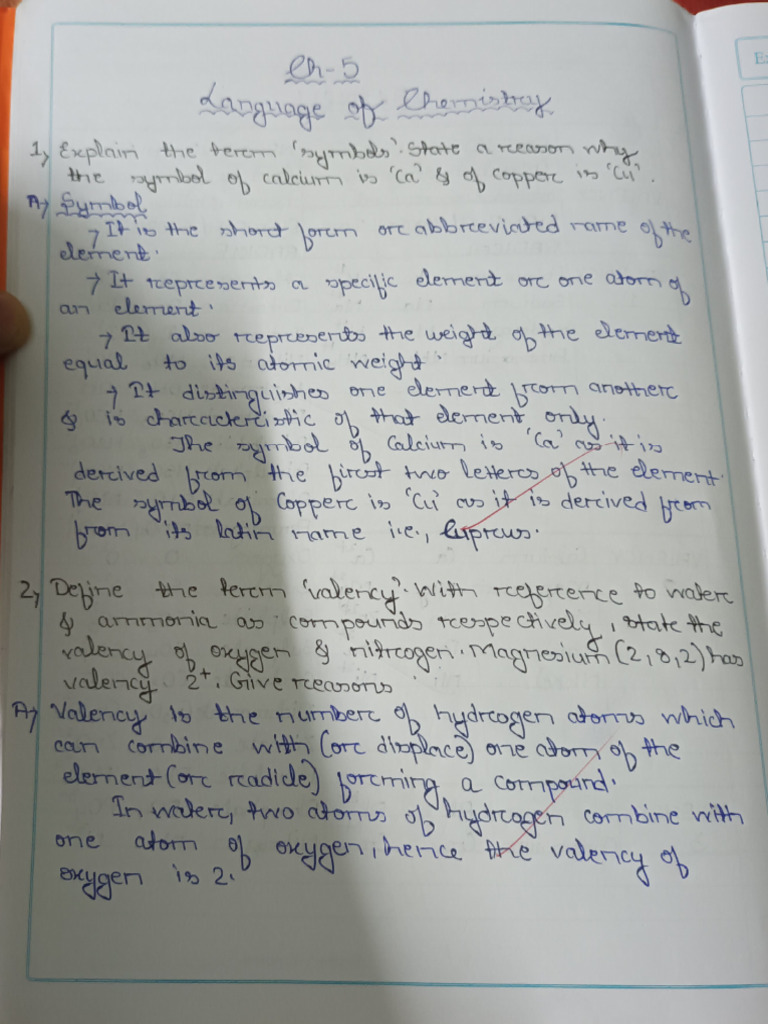 Ch-5
Language of Chemistry
1) Explain the term 'symbols'. State a reason why
the symbol of calcium is 'Ca' & of copper is 'Cu'.
A) Symbol
→ It is the short form or abbreviated name of the
element.
→ It represents a specific element or one atom of
an element.
→ It also represents the weight of the element
equal to its atomic weight.
→ It distinguishes one element from another
& is characteristic of that element only.
The symbol of Calcium is 'Ca' as it is
derived from the first two letters of the element.
The symbol of Copper is 'Cu' as it is derived from
from its latin name i.e., Cuprus.
2) Define the term 'valency'. With reference to water
& ammonia as compounds respectively, state the
valency of oxygen & nitrogen. Magnesium (2,8,2) has
valency 2+. Give reasons
A) Valency is the number of hydrogen atoms which
can combine with (or displace) one atom of the
element (or radicle) forming a compound.
In water, two atoms of hydrogen combine with
one atom of oxygen, hence the valency of
oxygen is 2.